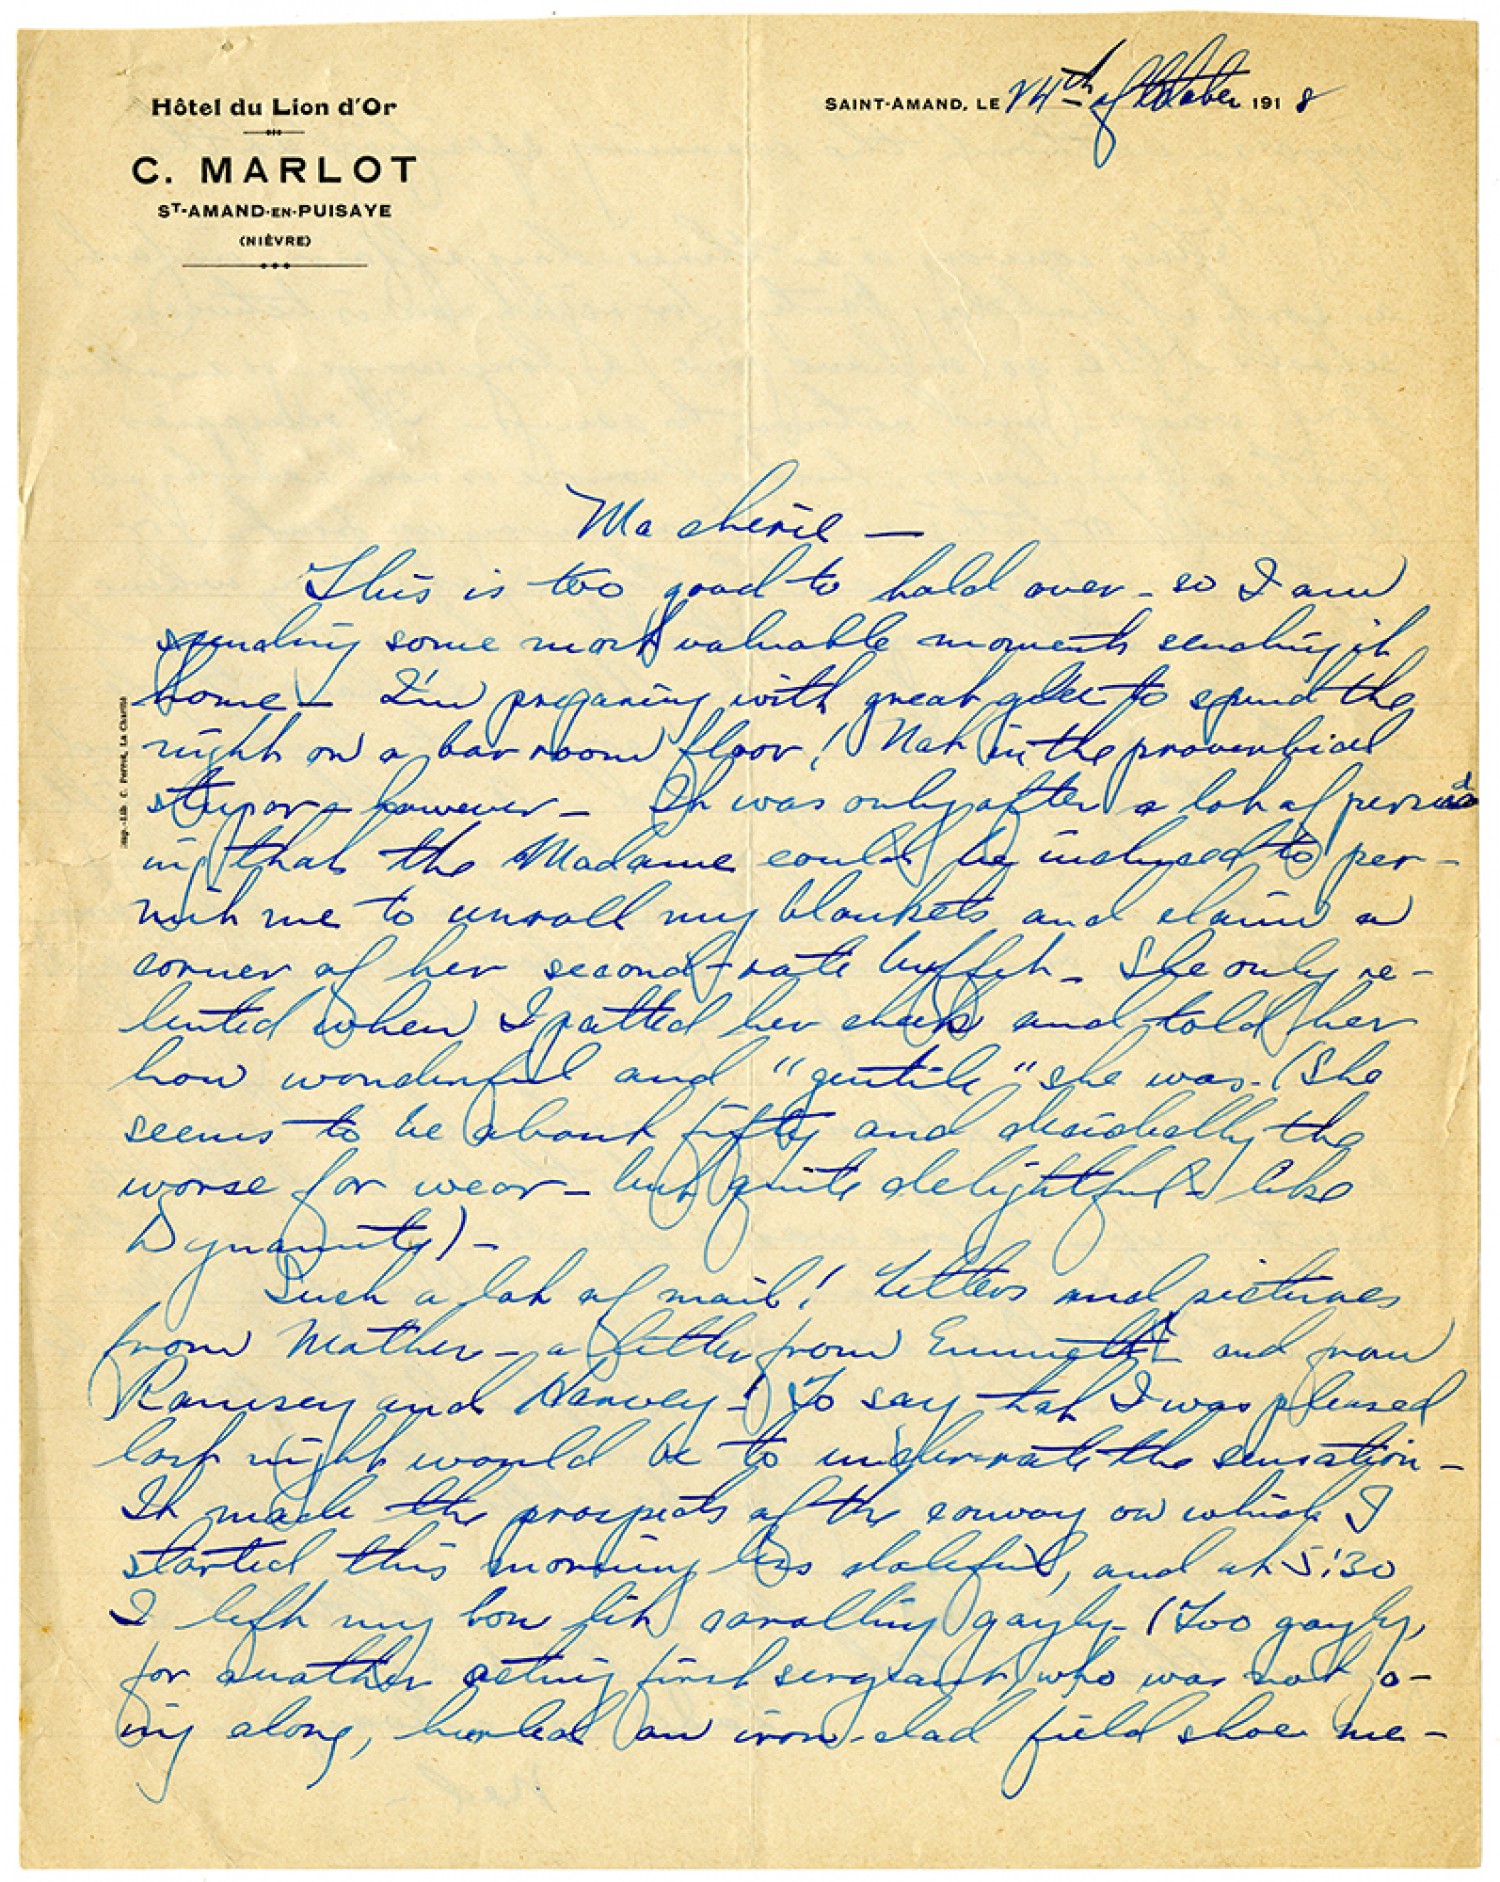 Hôtel du Lion d'Or
C. MARLOT
ST-AMAND-EN-PUISAYE
(NIÈVRE)
SAINT-AMAND, LE 14th of October 1918
Imp.-Lib. C. Perrot, La Charité
Ma cherie —
This is too good to hold over - so I am
spending some most valuable moments sending it
home — I'm preparing with great glee to spend the
night on a bar room floor! Not in the proverbial
stupor - however — It was only after a lot of persuad
ing that the Madame could be induced to per-
mit me to unroll my blankets and claim a
corner of her second-rate buffet - She only re-
lented when I patted her cheek and told her
how wonderful and "gentile" she was. (She
seems to be about fifty and decidedly the
worse for wear - but quite delightful - like
Dynamite) -
Such a lot of mail! Letters and pictures
from Mother - a letter from Emmett - and from
Ramsey and Harvey -! To say that I was pleased
last night would be to underrate the sensation -
It made the prospects of the convoy on which I
started this morning less doleful, and at 5:30
I left my bow lit carolling gayly - (Too gayly,
for another acting first sergeant, who was not go-
ing along, hurled an iron-clad field shoe me-